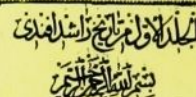 الجلد الاول من تاريخ راشد افندى
بسم الله الرحمن الرحيم